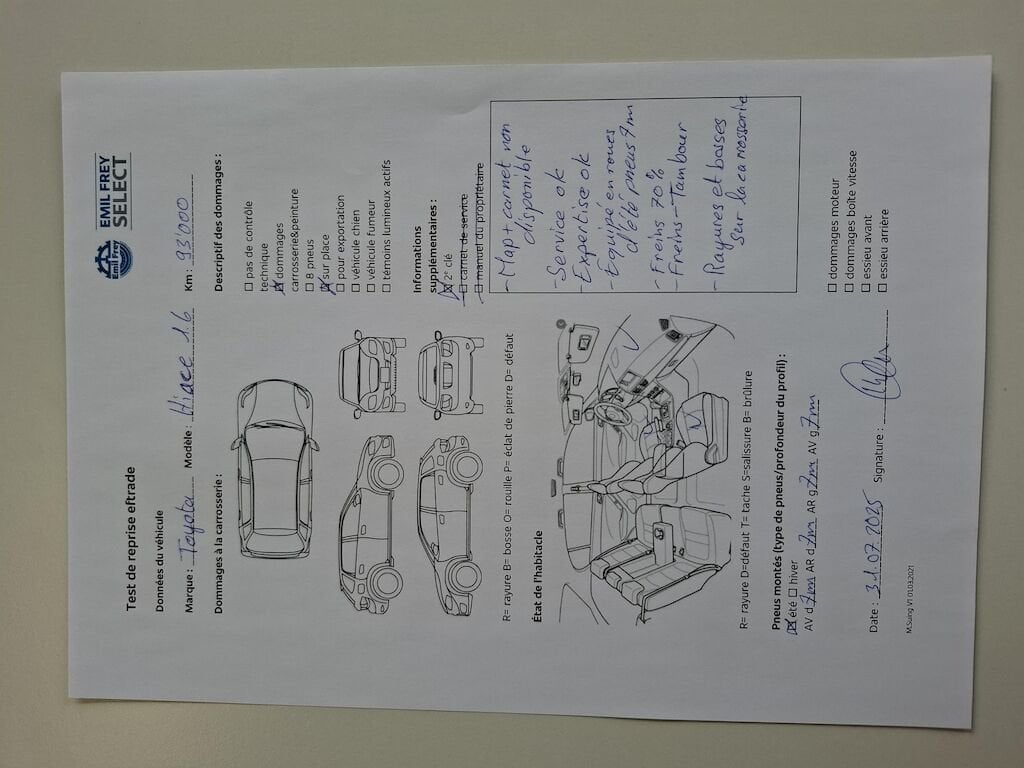 Emil Frey
EMIL FREY
SELECT
Test de reprise eftrade
Données du véhicule
Marque : Toyota Modèle : Hiace 1.6 Km : 93'000
Dommages à la carrosserie :
Descriptif des dommages :
☐ pas de contrôle
technique
☒ dommages
carrosserie&peinture
☐ 8 pneus
☒ sur place
☐ pour exportation
☐ véhicule chien
☐ véhicule fumeur
☐ témoins lumineux actifs
Informations
supplémentaires :
☒ 2ᵉ clé
☐ carnet de service
☐ manuel du propriétaire
R= rayure B= bosse O= rouille P= éclat de pierre D= défaut
État de l'habitacle
- Map + carnet non
disponible
- Service ok
- Expertise ok
- Equipé en roues
d'été pneus 7m
- Freins 70%
- Freins - Tambour
- Rayures et bosses
sur la carrosserie
R= rayure D=défaut T= tache S=salissure B= brûlure
Pneus montés (type de pneus/profondeur du profil) :
☒ été ☐ hiver
AV d 7m AR d 7m AR g 7m AV g 7m
☐ dommages moteur
☐ dommages boîte vitesse
☐ essieu avant
☐ essieu arrière
Date : 31.07.2025 Signature :
M.Suing V1 01.03.2021